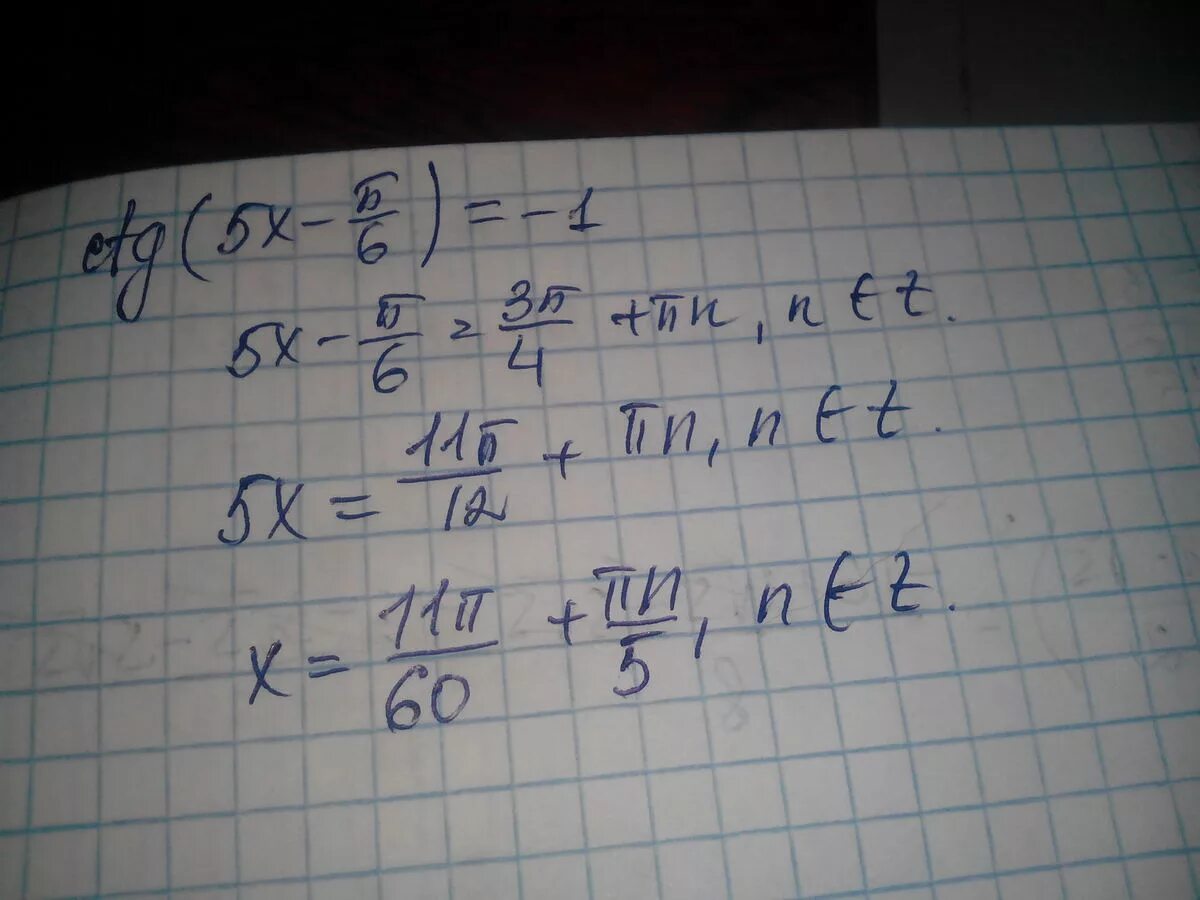 ctg(5x - π/6) = -1
5x - π/6 = 3π/4 + πn, n ∈ Z.
5x = 11π/12 + πn, n ∈ Z.
x = 11π/60 + πn/5, n ∈ Z.